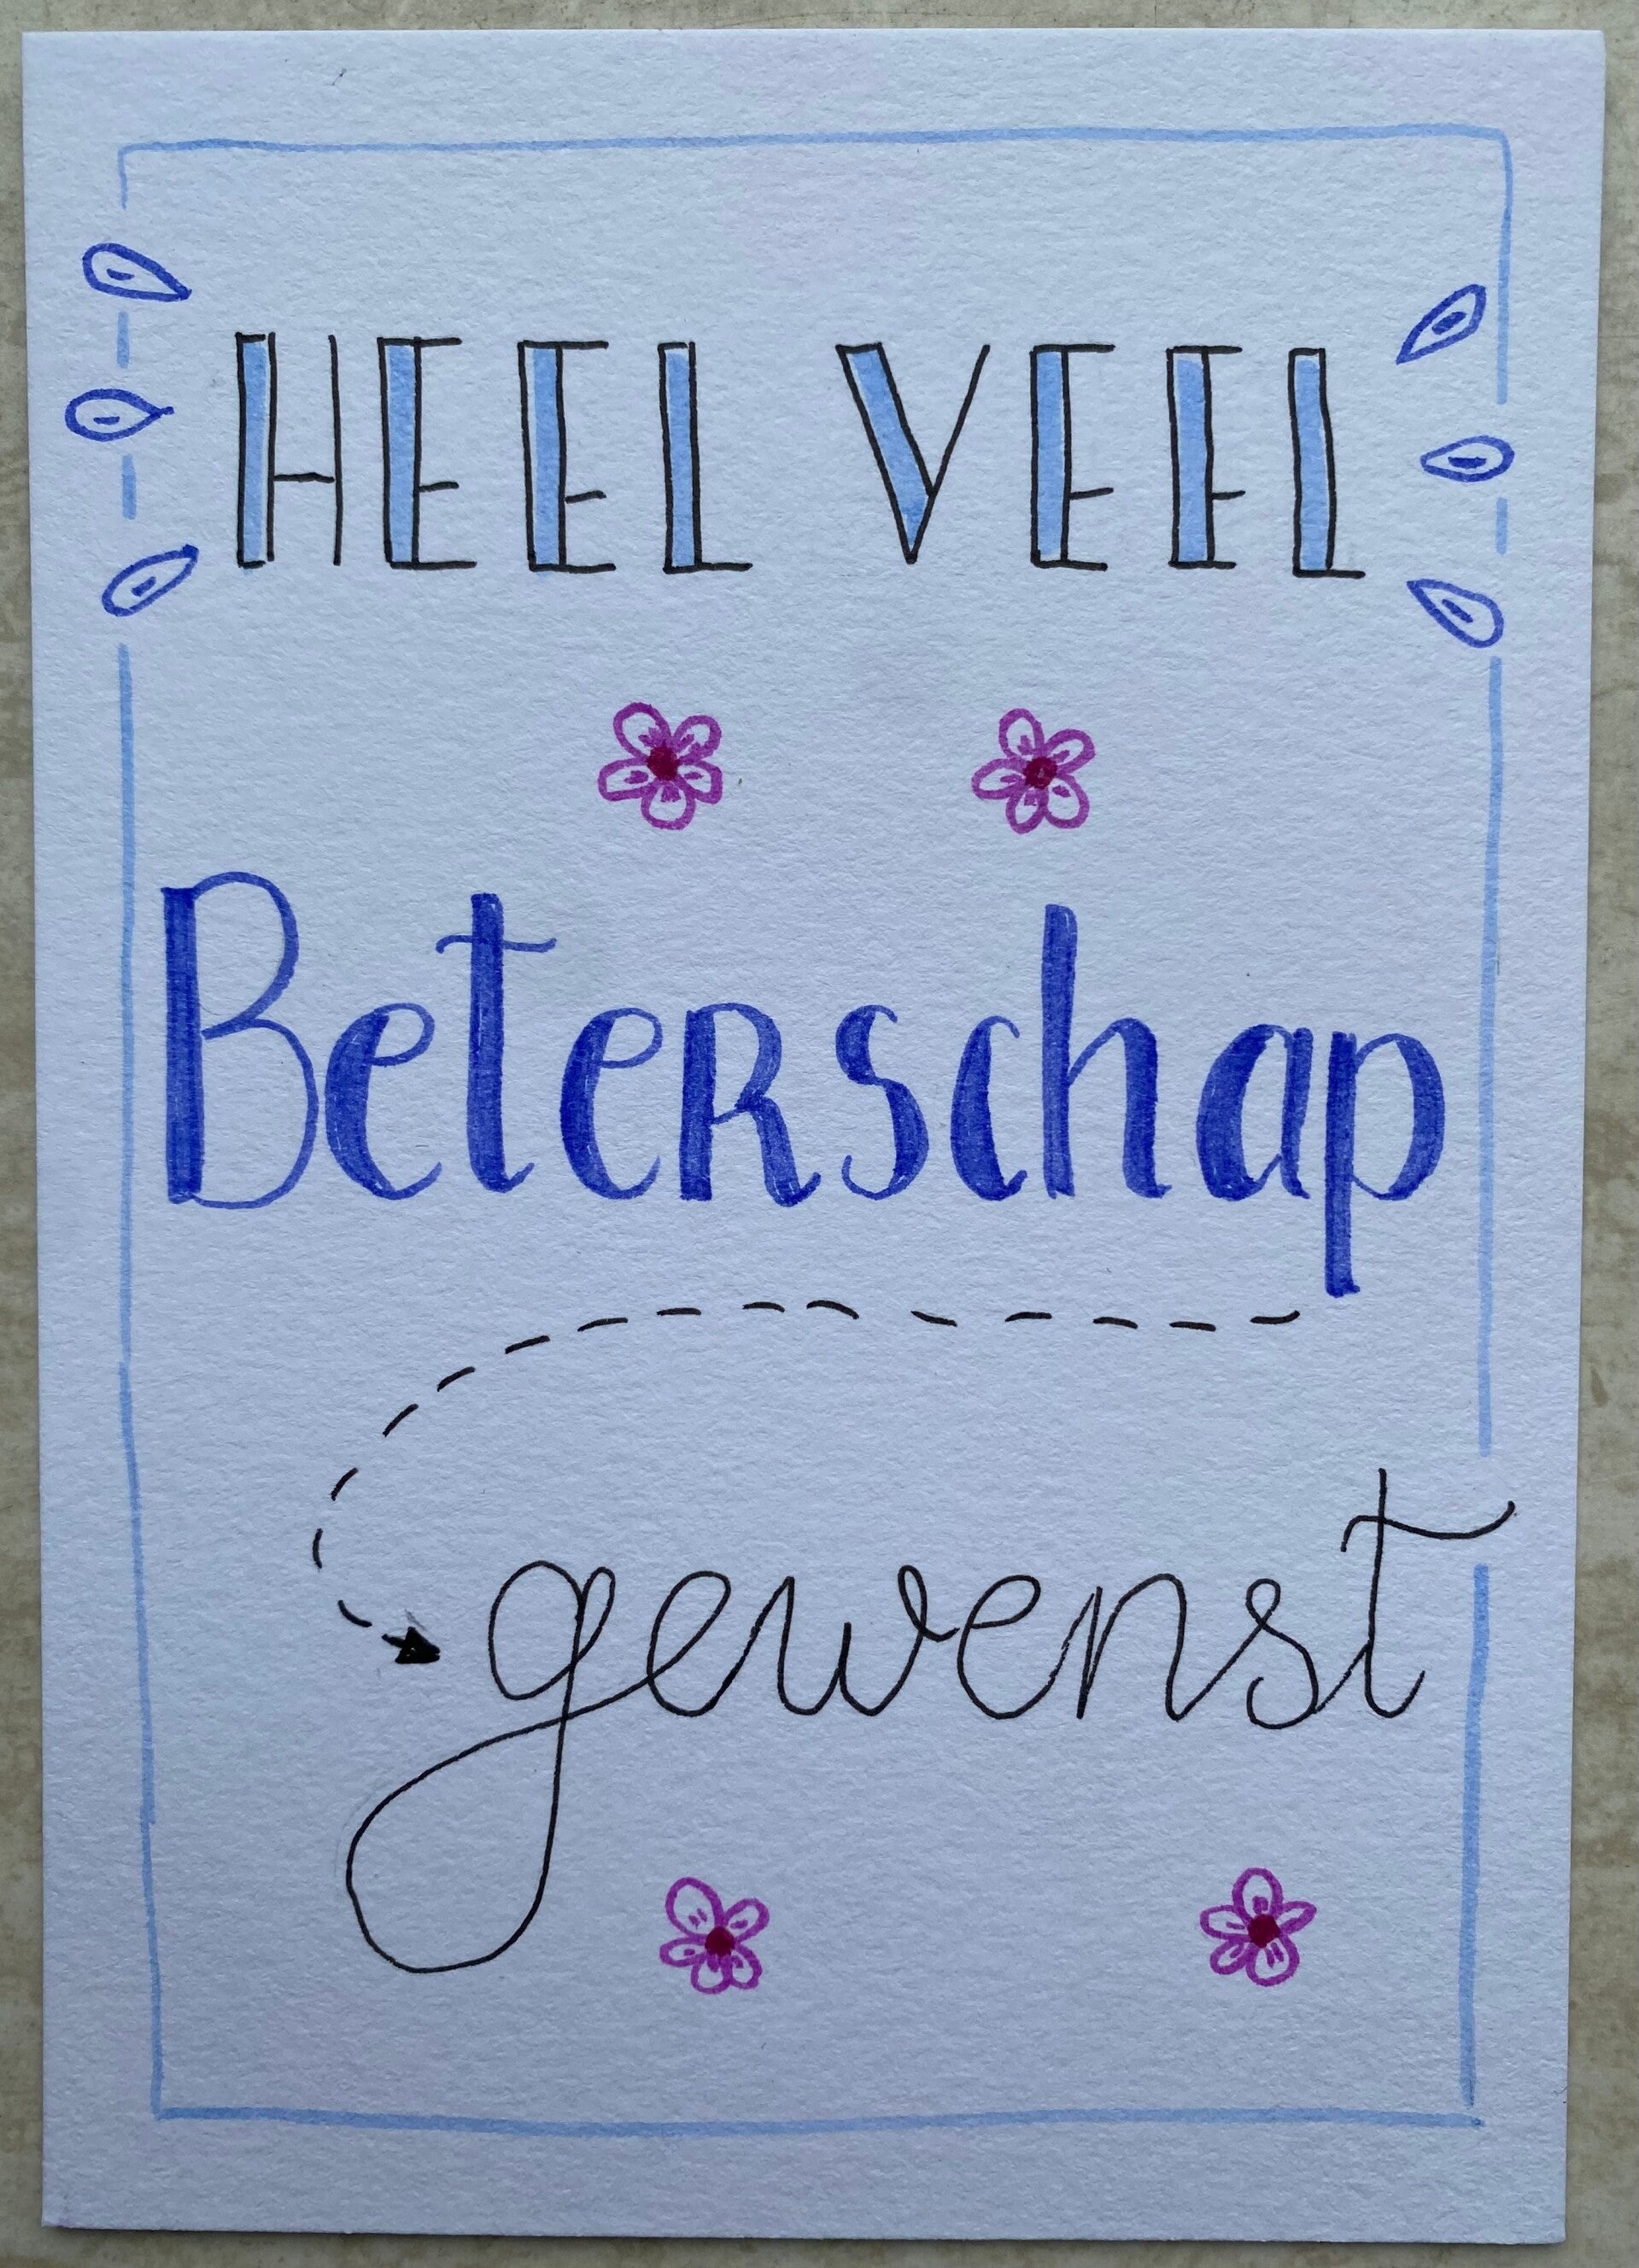 HEEL VEEL
Beterschap
gewenst